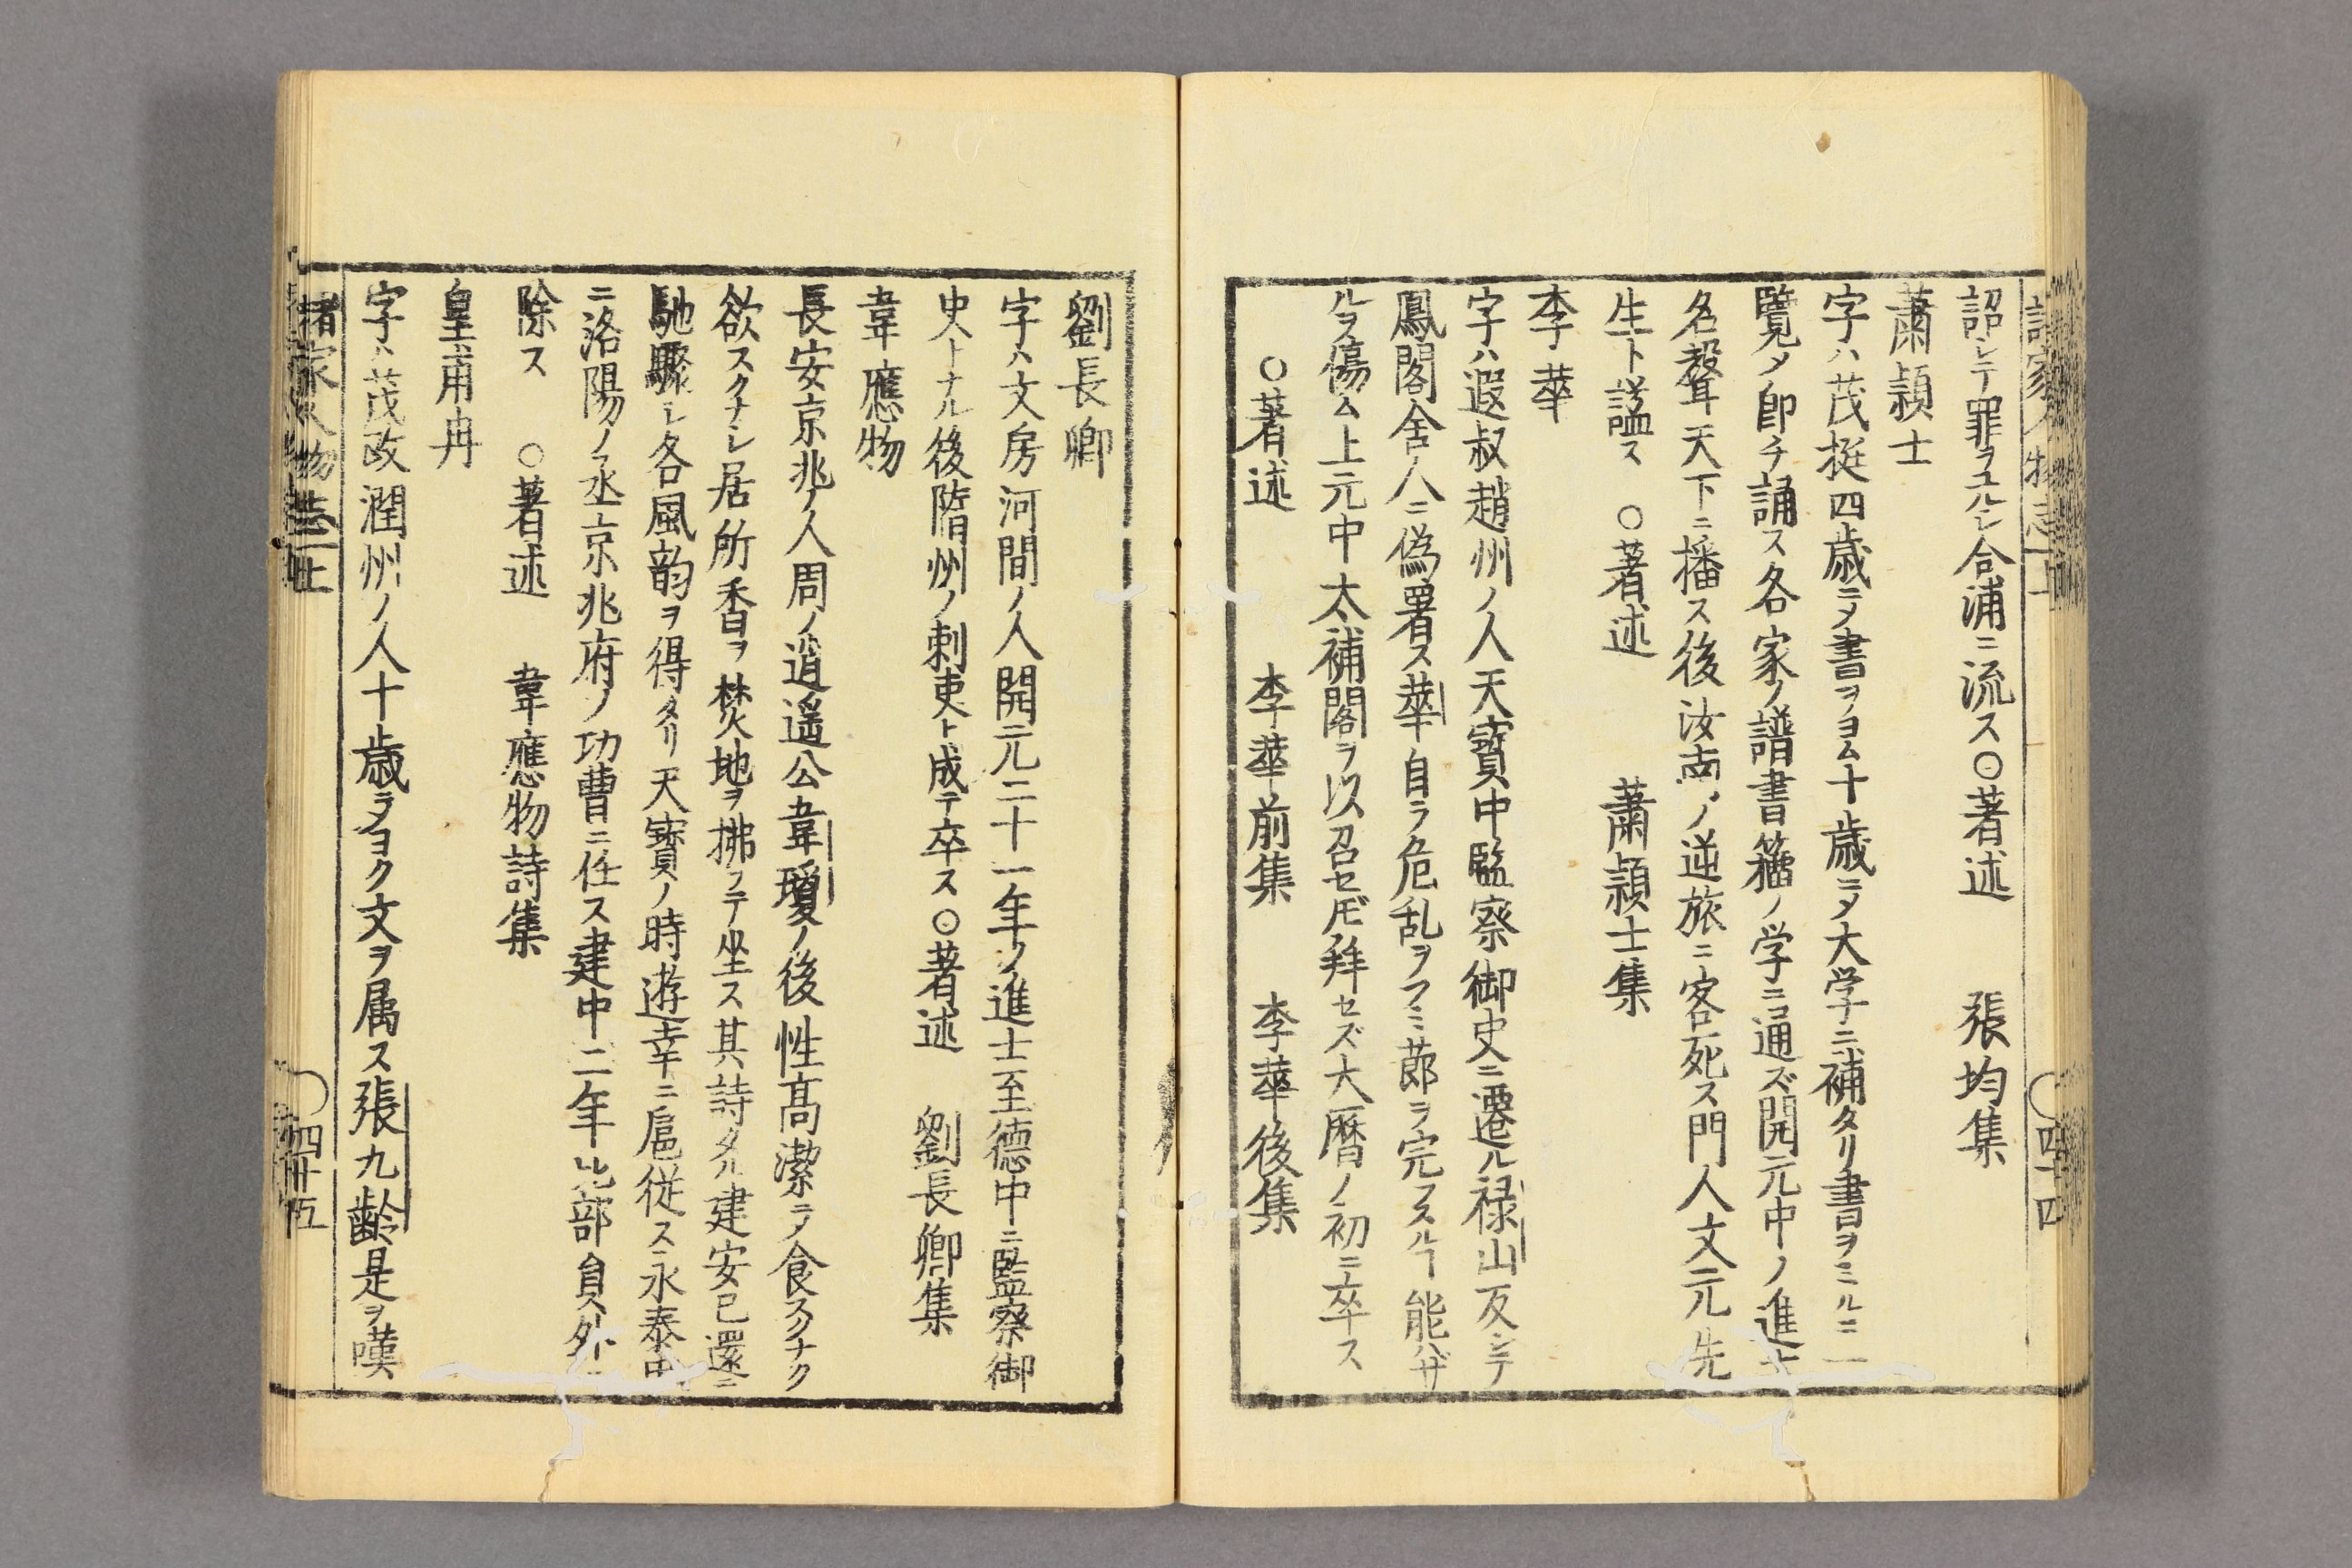 詔シテ罪ヲユルシ合浦ニ流ス○著述　張均集
蕭頴士
字ハ茂挺四歳ニメ書ヲヨム十歳ニメ大学ニ補タリ書ヲミルニ一
覽メ即チ誦ス各家ノ譜書籀ノ学ニ通ズ開元中ノ進士
名聲天下ニ播ス後汝南ノ逆旅ニ客死ス門人文元先
生ト謚ス　○著述　蕭頴士集
李華
字ハ遐叔趙州ノ人天寳中監察御史ニ遷ル禄山反シテ
鳳閣舎人ニ偽署ス華自ラ危乱ヲフミ莭ヲ完フスルヿ能ハザ
ルヲ傷ム上元中太補闕ヲ以召セ𪜈拜セズ大暦ノ初ニ卒ス
○著述　李華前集　李華後集
劉長卿
字ハ文房河間ノ人開元二十一年ノ進士至德中ニ監察御
史トナル後隋州ノ刺吏ト成テ卒ス○著述　劉長卿集
韋應物
長安京兆ノ人周ノ逍遥公韋瓊ノ後性高潔ニメ食スクナク
欲スクナシ居所香ヲ焚地ヲ拂フテ坐ス其詩タル建安已還ニ
馳驟シ各風韵ヲ得タリ天寳ノ時遊幸ニ扈従ス永泰中
ニ洛陽ノ丞京兆府ノ功曹ニ任ス建中二年比部員外ニ
除ス　○著述　韋應物詩集
皇甫冉
字ハ茂政潤州ノ人十歳ヲヨク文ヲ属ス張九齡是ヲ嘆
諸家人物志上　四十五